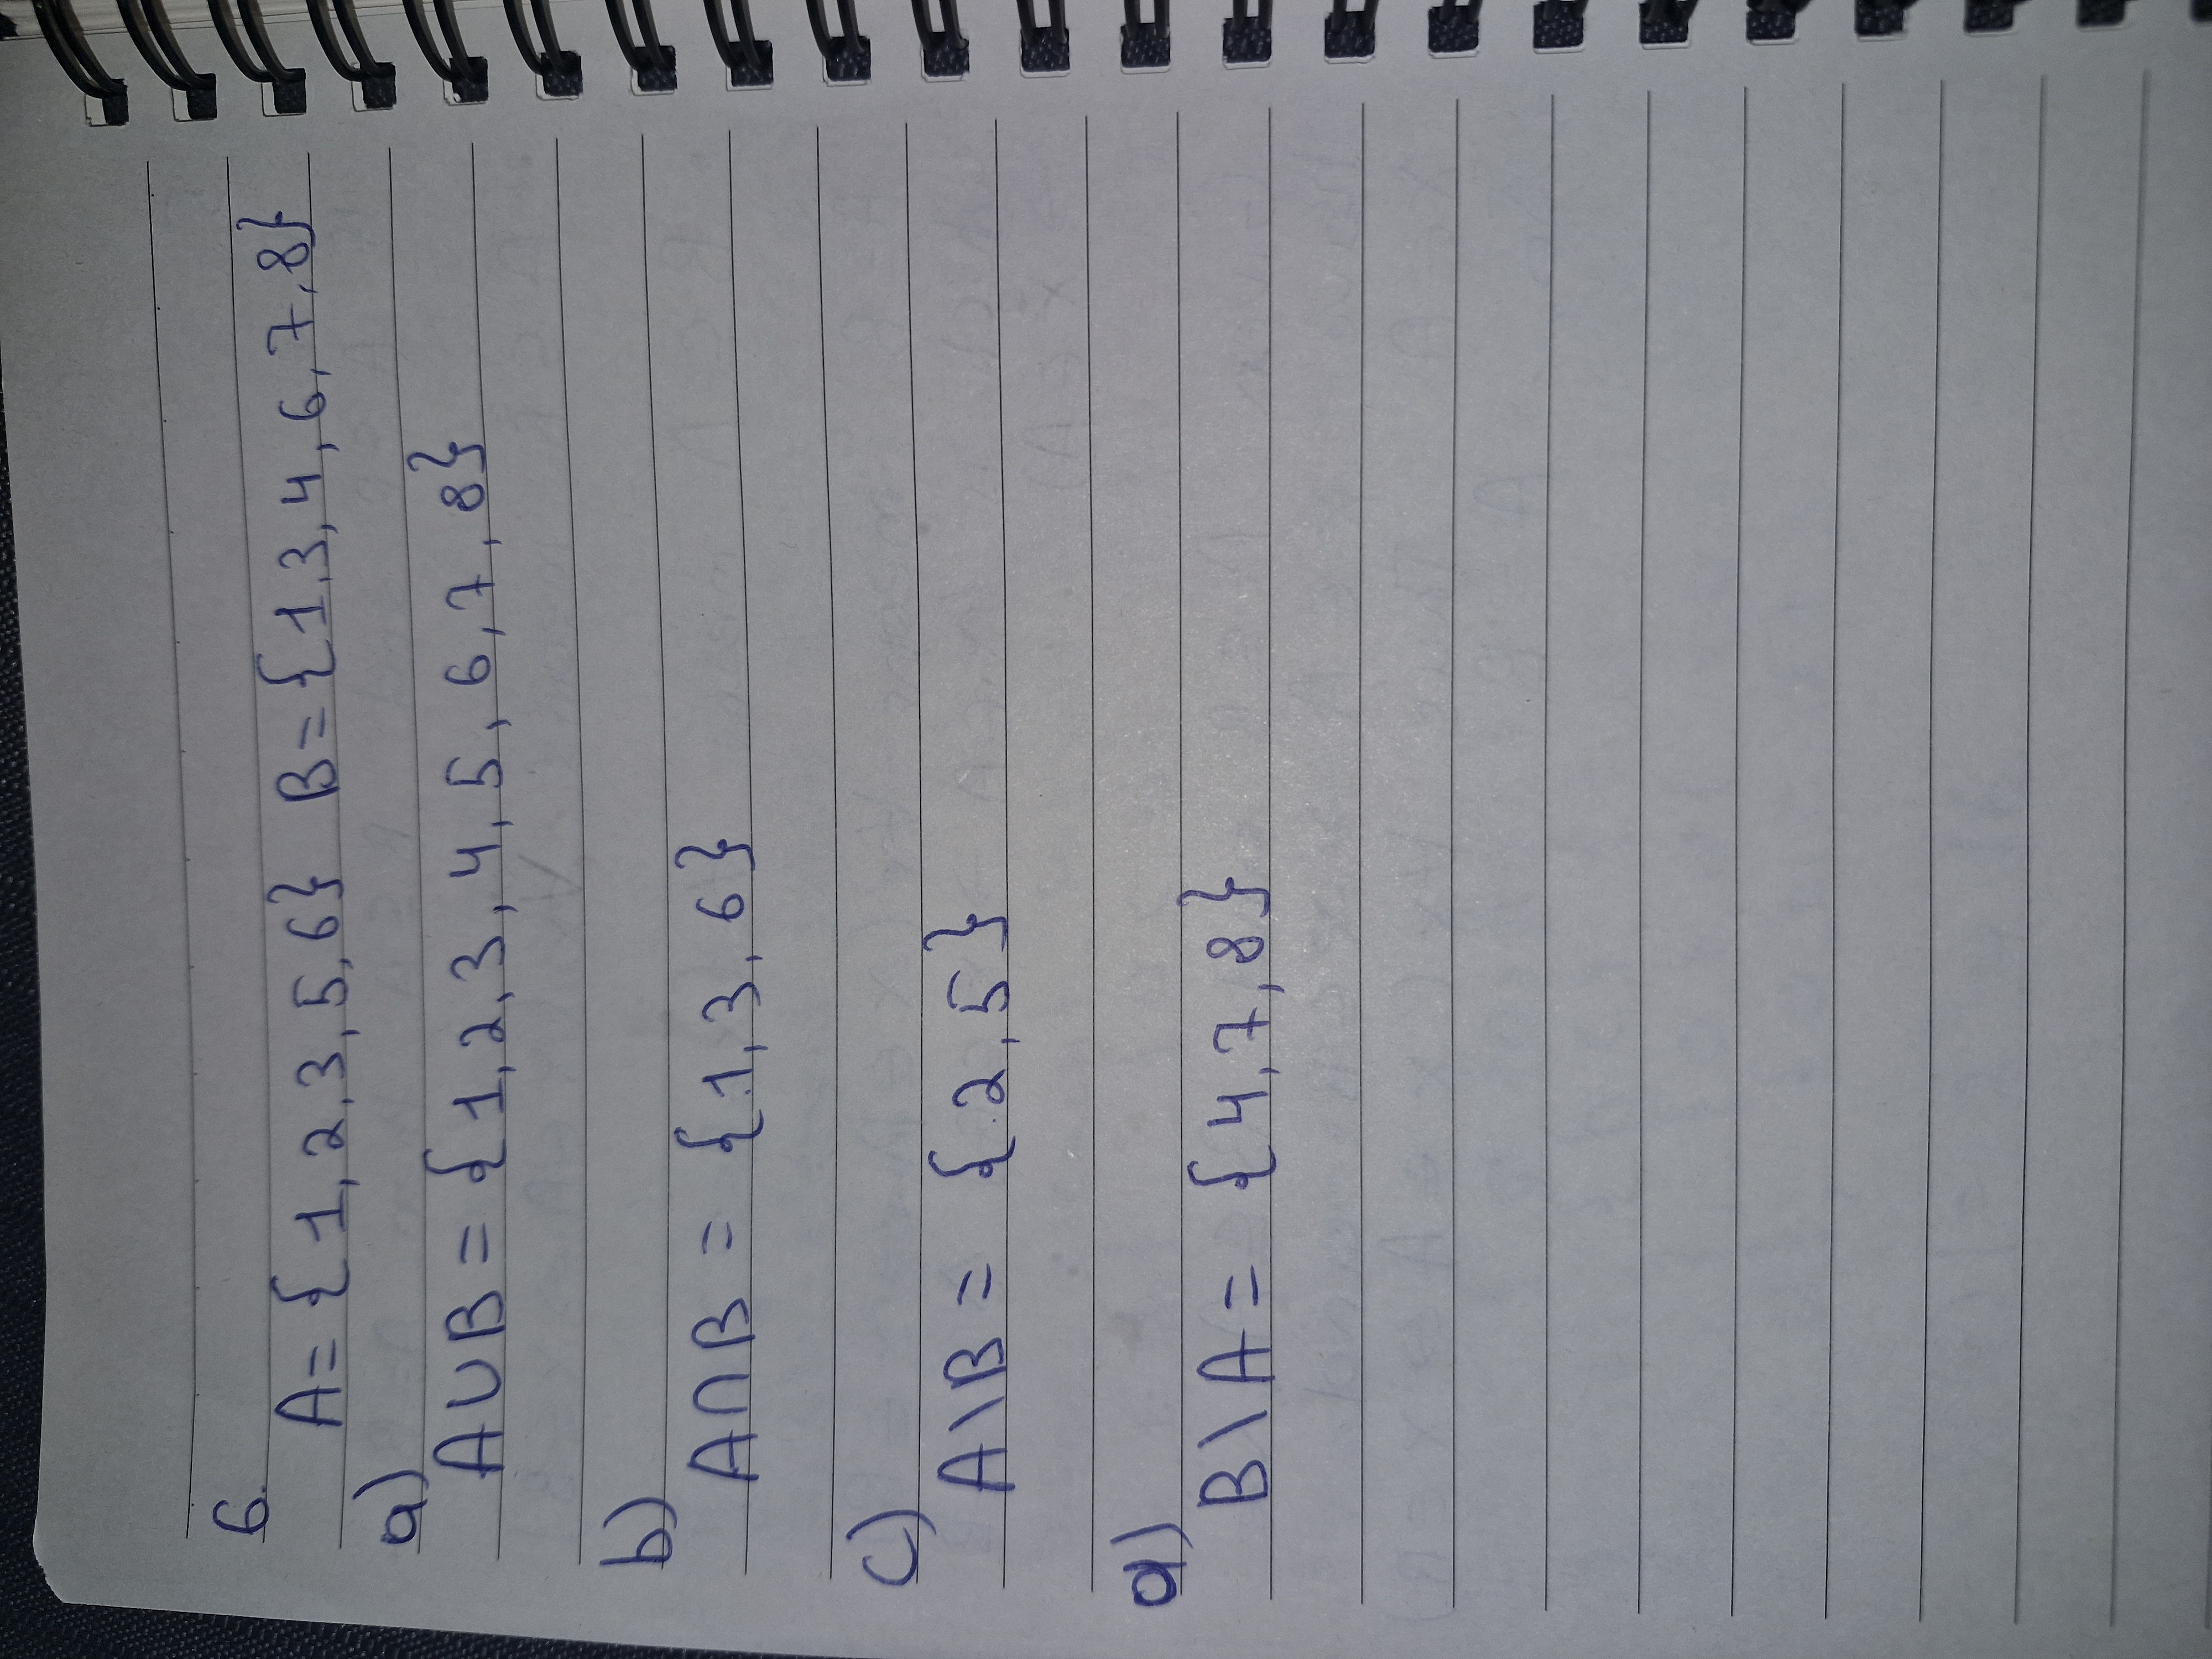 6.
A = { 1, 2, 3, 5, 6} B = { 1, 3, 4, 6, 7, 8}
a)
A∪B = { 1, 2, 3, 4, 5, 6, 7, 8}
b)
A∩B = { 1, 3, 6}
c)
A\B = { 2, 5 }
d)
B\A = { 4, 7, 8 }